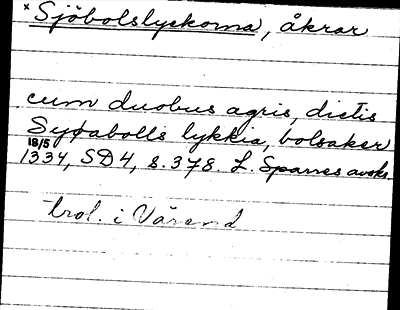 * Sjöbolslyckorna, åkrar
cum duobus agris, dictis
Syøabolls lykkia, bolsaker
18/5
1334, SD 4, s. 378. L. Sparres avskr.
trol. i Värend